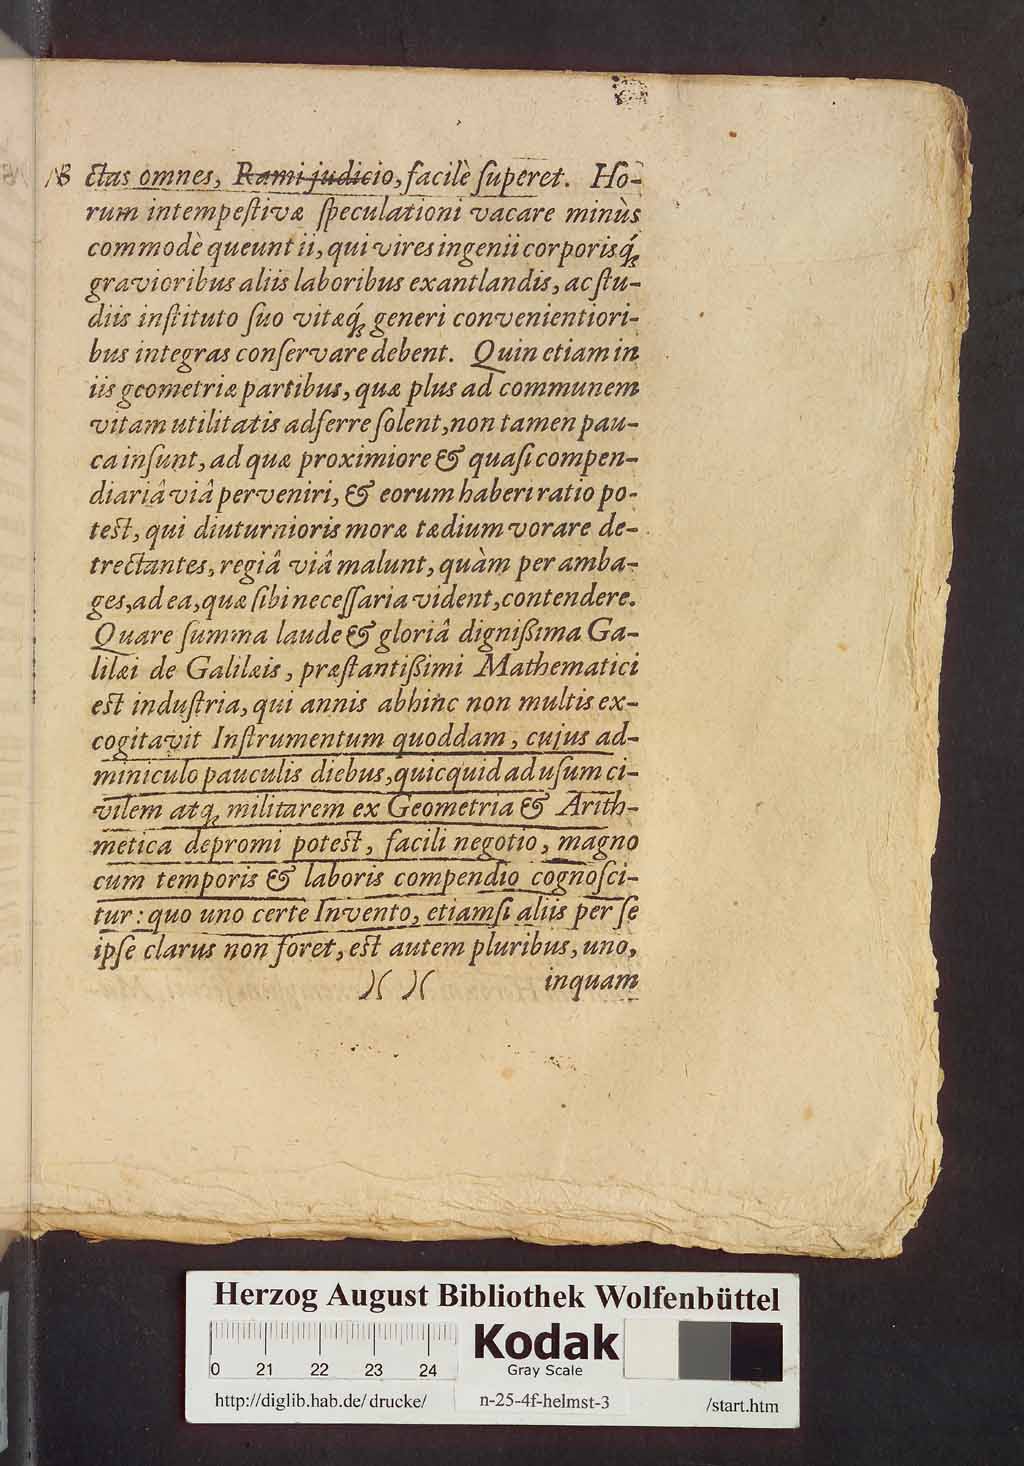 NB ctas omnes, Rami judicio, facilè ſuperet. Ho-
rum intempeſtivæ ſpeculationi vacare minùs
commodè queunt ii, qui vires ingenii corporisq́;
gravioribus aliis laboribus exantlandis, ac ſtu-
diis inſtituto ſuo vitæq́; generi convenientiori-
bus integras conſervare debent. Quin etiam in
iis geometriæ partibus, quæ plus ad communem
vitam utilitatis adferre ſolent, non tamen pau-
ca inſunt, ad quæ proximiore & quaſi compen-
diariâ viâ perveniri, & eorum haberi ratio po-
teſt, qui diuturnioris moræ tædium vorare de-
trectantes, regiâ viâ malunt, quàm per amba-
ges, ad ea, quæ ſibi neceſſaria vident, contendere.
Quare ſumma laude & gloriâ dignißima Ga-
lilæi de Galilæis, præſtantißimi Mathematici
eſt induſtria, qui annis abhinc non multis ex-
cogitavit Inſtrumentum quoddam, cujus ad-
miniculo pauculis diebus, quicquid ad uſum ci-
vilem atq; militarem ex Geometria & Arith-
metica depromi poteſt, facili negotio, magno
cum temporis & laboris compendio cognoſci-
tur: quo uno certe Invento, etiamſi aliis per ſe
ipſe clarus non foret, eſt autem pluribus, uno,
)( )( inquam
Herzog August Bibliothek Wolfenbüttel
0 21 22 23 24
Kodak
Gray Scale
http://diglib.hab.de/drucke/ n-25-4f-helmst-3 /start.htm